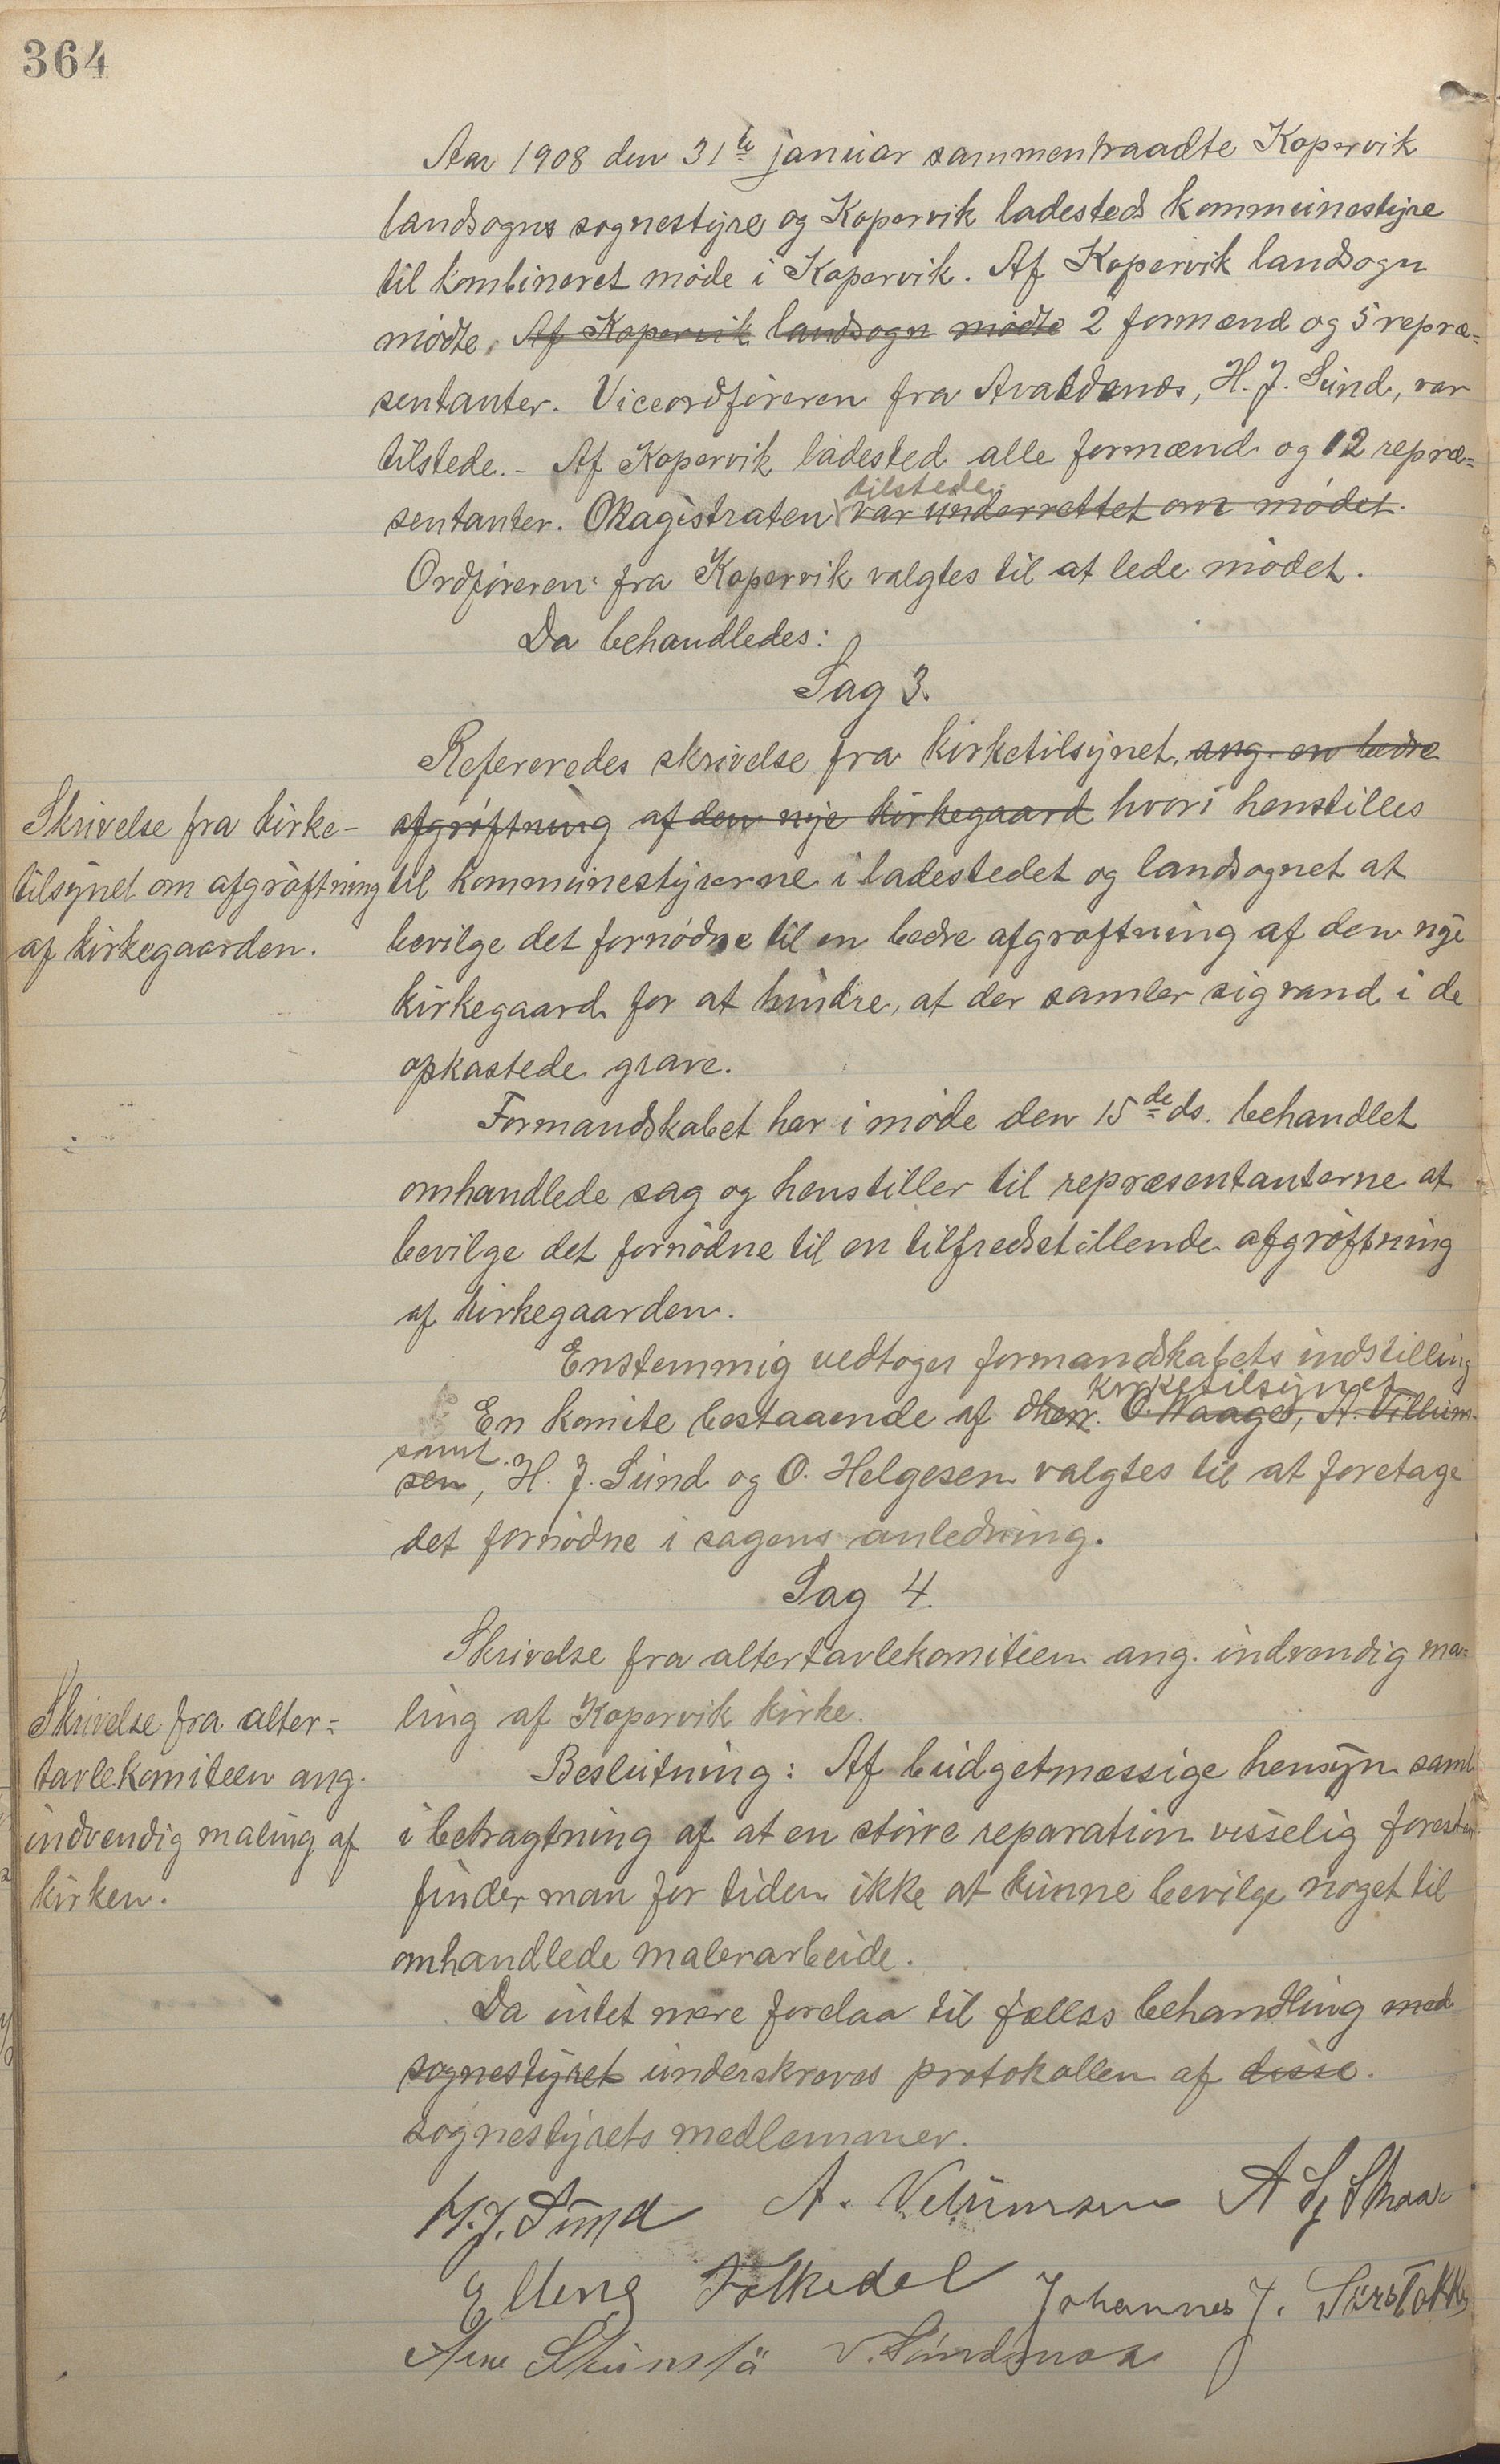 364
Aar 1908 den 31te januar sammentraadte Kopervik
landsogns sognestyre og Kopervik ladesteds kommunestyre
til kombineret møde i Kopervik. Af Kopervik landsogn
mødte, Af Kopervik landsogn mødte 2 formænd og 5 repræ=
sentanter. Viceordføreren fra Avaldsnes, H. J. Sund, var
tilstede. - Af Kopervik ladested alle formænd og 12 repræ=
tilstede.
sentanter. Magistraten var underrettet om mødet.
Ordføreren fra Kopervik valgtes til at lede mødet.
Da behandledes:
Sag 3.
Refereredes skrivelse fra kirketilsynet, ang. en bedre
afgrøftning af den nye kirkegaard hvori henstilles
til kommunestyrerne i ladestedet og landsognet at
bevilge det fornødne til en bedre afgrøftning af den nye
kirkegaard for at hindre, at der samler sig vand i de
opkastede grave.
Skrivelse fra kirke-
tilsynet om afgrøftning
af kirkegaarden.
Formandskabet har i møde den 15de ds. behandlet
omhandlede sag og henstiller til repræsentanterne at
bevilge det fornødne til en tilfredsstillende afgrøftning
af kirkegaarden.
Enstemmig vedtoges formandskabets indstilling
kirketilsynet
En komite bestaaende af dherr. O. Waage, A. Villum-
samt
sen, H. J. Sund og O. Helgesen valgtes til at foretage
det fornødne i sagens anledning.
Sag 4.
Skrivelse fra altertavlekomiteen ang. indvendig ma=
ling af Kopervik kirke.
Skrivelse fra alter=
tavlekomiteen ang.
indvendig maling af
kirken.
Beslutning: Af budgetmæssige hensyn samt
i betragtning af at en større reparation visselig forestaar
finder man for tiden ikke at kunne bevilge noget til
omhandlede malerarbeide.
Da intet mere forelaa til fælles behandling med
sognestyret underskreves protokollen af disse.
sognestyrets medlemmer.
H. J. Sund A. Velumsen A
Elling Folkedal Johannes J.
Arne